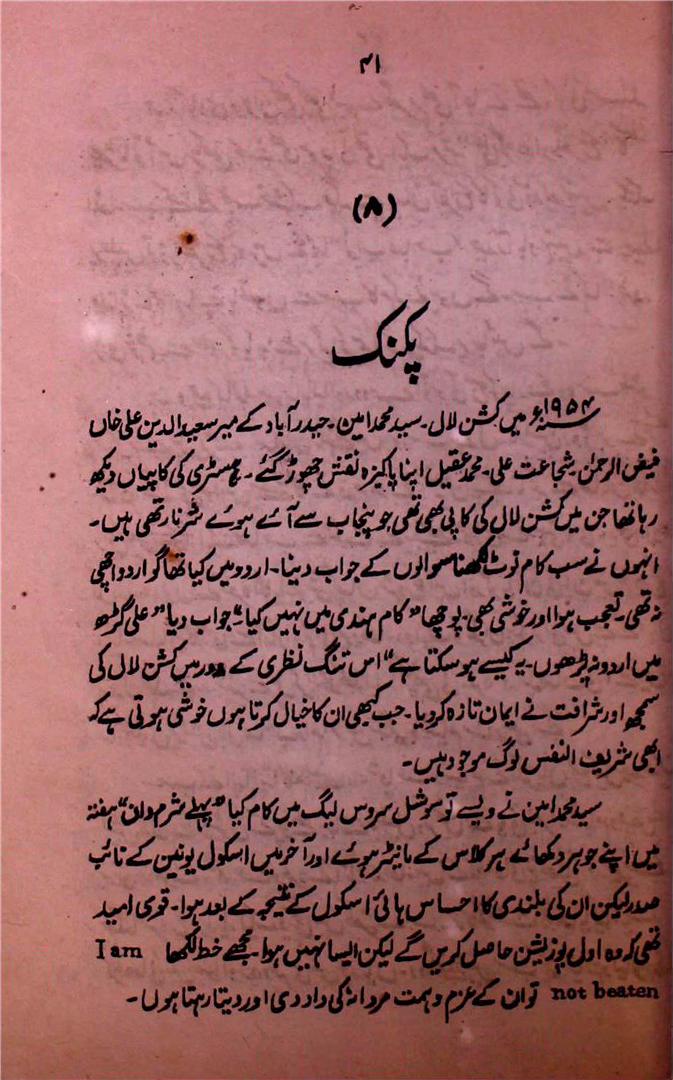 ۴۱
(۸)
پکنک
۱۹۵۴ء میں کشن لال۔ سید محمد امین۔ حیدر آباد کے میر سعید الدین علی خاں
فیض الرحمٰن۔ شجاعت علی۔ محمد عقیل اپنا پاکیزہ نقش چھوڑ گئے۔ کیمسٹری کی کاپیاں دیکھ
رہا تھا جن میں کشن لال کی کاپی بھی تھی جو پنجاب سے آئے ہوئے شرنارتھی ہیں۔
انہوں نے سب کام نوٹ لکھنا سوالوں کے جواب دینا۔ اردو میں کیا تھا گو اردو اچھی
نہ تھی۔ تعجب ہوا اور خوشی بھی۔ پوچھا "کام ہندی میں نہیں کیا۔" جواب دیا "علی گڑھ
میں اردو نہ پڑھوں۔ یہ کیسے ہو سکتا ہے" اس تنگ نظری کے دور میں کشن لال کی
سمجھ اور شرافت نے ایمان تازہ کر دیا۔ جب کبھی ان کا خیال کرتا ہوں خوشی ہوتی ہے کہ
ابھی شریف النفس لوگ موجود ہیں۔
سید محمد امین نے ویسے تو سوشل سروس لیگ میں کام کیا "پہلے شرم دان" ہفتہ
میں اپنے جوہر دکھائے ہر کلاس کے مانیٹر ہوئے اور آخر میں اسکول یونین کے نائب
صدر لیکن ان کی بلندی کا احساس ہائی اسکول کے نتیجہ کے بعد ہوا۔ قوی امید
تھی کہ وہ اول پوزیشن حاصل کریں گے لیکن ایسا نہیں ہوا۔ مجھے خط لکھا I am
not beaten تو ان کے عزم و ہمت مردانہ کی داد دی اور دیتا رہتا ہوں۔